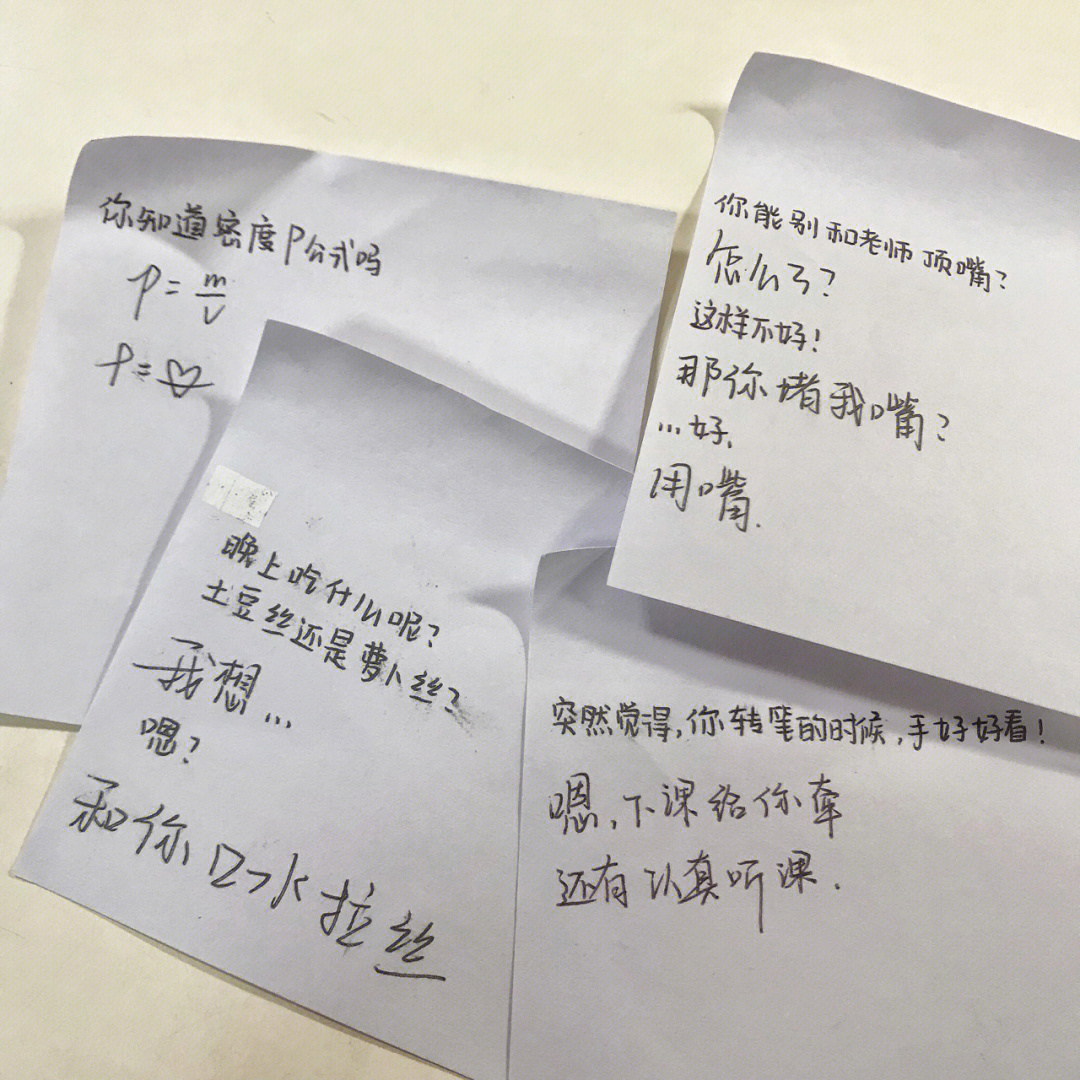 你知道密度ρ公式吗
ρ=m/v
ρ=♡
你能别和老师顶嘴?
怎么了?
这样不好!
那你堵我嘴?
...好.
用嘴.
晚上吃什么呢?
土豆丝还是萝卜丝?
我想...
嗯?
和你口水拉丝
突然觉得,你转笔的时候,手好好看!
嗯,下课给你牵
还有认真听课.